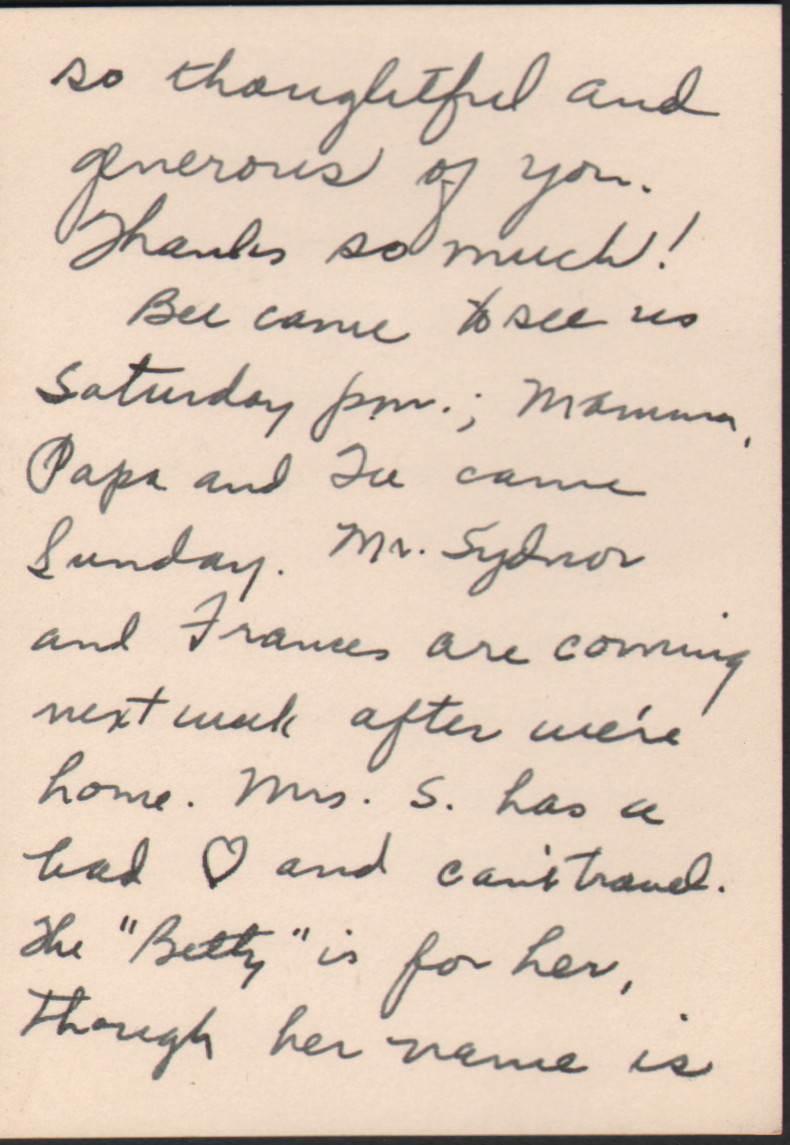 so thoughtful and
generous of you.
Thanks so much!
Bee came to see us
Saturday pm.; Mamma,
Papa and Tee came
Sunday. Mr. Sydnor
and Frances are coming
next week after we're
home. Mrs. S. has a
bad ♡ and can't travel.
The "Betty" is for her,
though her name is